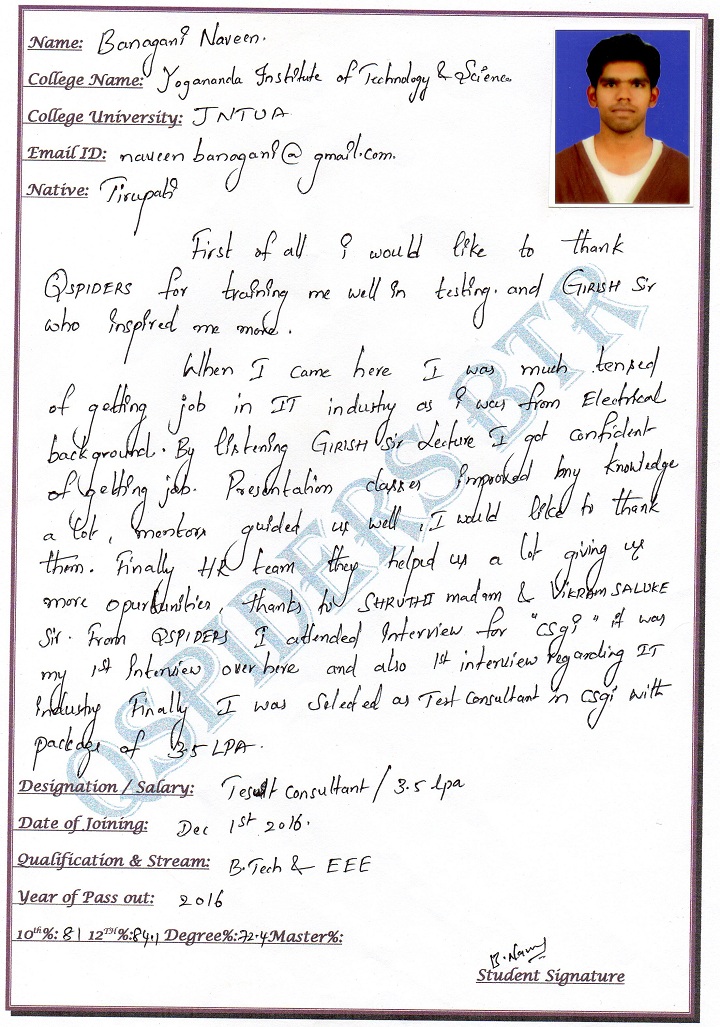 Name: Banagani Naveen.
College Name: Yogananda Institute of Technology & Science
College University: JNTUA
Email ID: naveen banagani@gmail.com.
Native: Tirupati
First of all i would like to thank
QSPIDERS for training me well in testing. and GIRISH Sir
who inspired me more.
When I came here I was much tensed
of getting job in IT industry as i was from Electrical
background. By listening GIRISH Sir Lecture I got confident
of getting job. Presentation classes improved my knowledge
a lot, mentors guided us well, I would like to thank
them. Finally HR team they helped us a lot giving us
more opurtunities, thanks to SHRUTHI madam & VIKRAM SALUKE
Sir. From QSPIDERS I attended Interview for "csgi" it was
my 1st Interview over here and also 1st interview regarding IT
industry Finally I was Selected as Test Consultant in csgi with
package of 3.5 LPA.
QSPIDERS BTR
Designation / Salary: Test Consultant / 3.5 lpa
Date of Joining: Dec 1st 2016.
Qualification & Stream: B.Tech & EEE
Year of Pass out: 2016
10th%: 81 12TH%: 84.1 Degree%: 72.4 Master%:
B. Navy
Student Signature